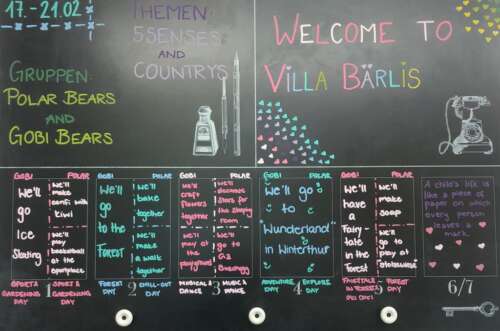 17.-21.02
THEMEN:
5 SENSES
AND
COUNTRYS
GRUPPEN:
POLAR BEARS
AND
GOBI BEARS
WELCOME TO
VILLA BÄRLIS
GOBI POLAR
We'll
go
Ice
Skating
We'll
make
with
kiwi
We'll
play
basketball
at the
sportplace
SPORT &
GARDENING
DAY
1
SPORT &
GARDENING
DAY
GOBI POLAR
We'll
go
to the
Forest
We'll
bake
together
We'll
make
a walk
together
FOREST
DAY
2
CHILL-OUT
DAY
GOBI POLAR
We'll
craft
flowers
together
We'll
decorate
stars for
the sleeping
room
We'll
play at
the
playground
We'll
go to
GZ
MUSICAL &
DANCE
3
MUSIC &
DANCE
GOBI POLAR
We'll go
to
"Wunderland"
in
Winterthur
ADVENTURE
DAY
4
EXPLORE
DAY
GOBI POLAR
We'll
have
a
Fairy-
tale
in the
Forest
We'll
make
soap
We'll
go to
play at
FAIRYTALE
5
FOREST
DAY
A child's life is
like a piece of
paper on which
every person
leaves a
mark.
6/7